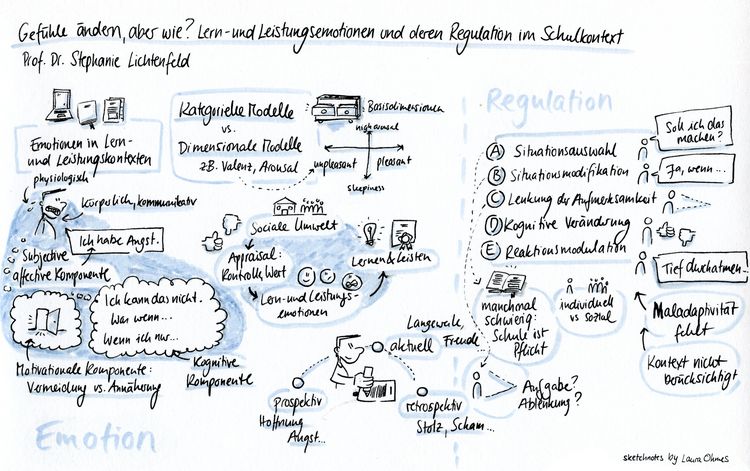 Gefühle ändern, aber wie? Lern- und Leistungsemotionen und deren Regulation im Schulkontext
Prof. Dr. Stephanie Lichtenfeld
Emotionen in Lern-
und Leistungskontexten
physiologisch
Körperlich, kommunikativ
Ich habe Angst.
Subjective
affective Komponente
Ich kann das nicht.
Was wenn...
Wenn ich nur...
Motivationale Komponente:
Vermeidung vs. Annährung
Kognitive
Komponente
Emotion
Kategorielle Modelle
vs.
Dimensionale Modelle
z.B. Valenz, Arousal
Basisdimensionen
high arousal
unpleasant
pleasant
sleepiness
Soziale Umwelt
Appraisal:
Kontrolle, Wert
Lern- und Leistungs-
emotionen
Lernen & Leisten
Langeweile,
Freude
aktuell
prospektiv
Hoffnung
Angst...
retrospektiv
Stolz, Scham...
Regulation
A Situationsauswahl
B Situationsmodifikation
C Lenkung der Aufmerksamkeit
D Kognitive Veränderung
E Reaktionsmodulation
Soll ich das
machen?
Ja, wenn...
Tief durchatmen...
manchmal
schwierig:
Schule ist
Pflicht
individuell
vs sozial
Maladaptivität
fehlt
Kontext nicht
berücksichtigt
Aufgabe?
Ablenkung?
sketchnotes by Laura Ohmes